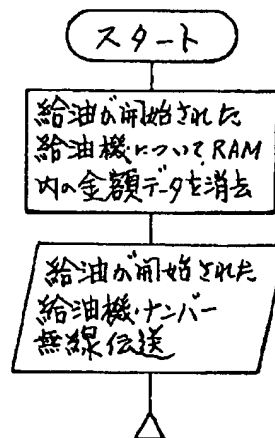 スタート
給油が開始された
給油機について,RAM
内の金額データを消去
給油が開始された
給油機・ナンバー
無線伝送